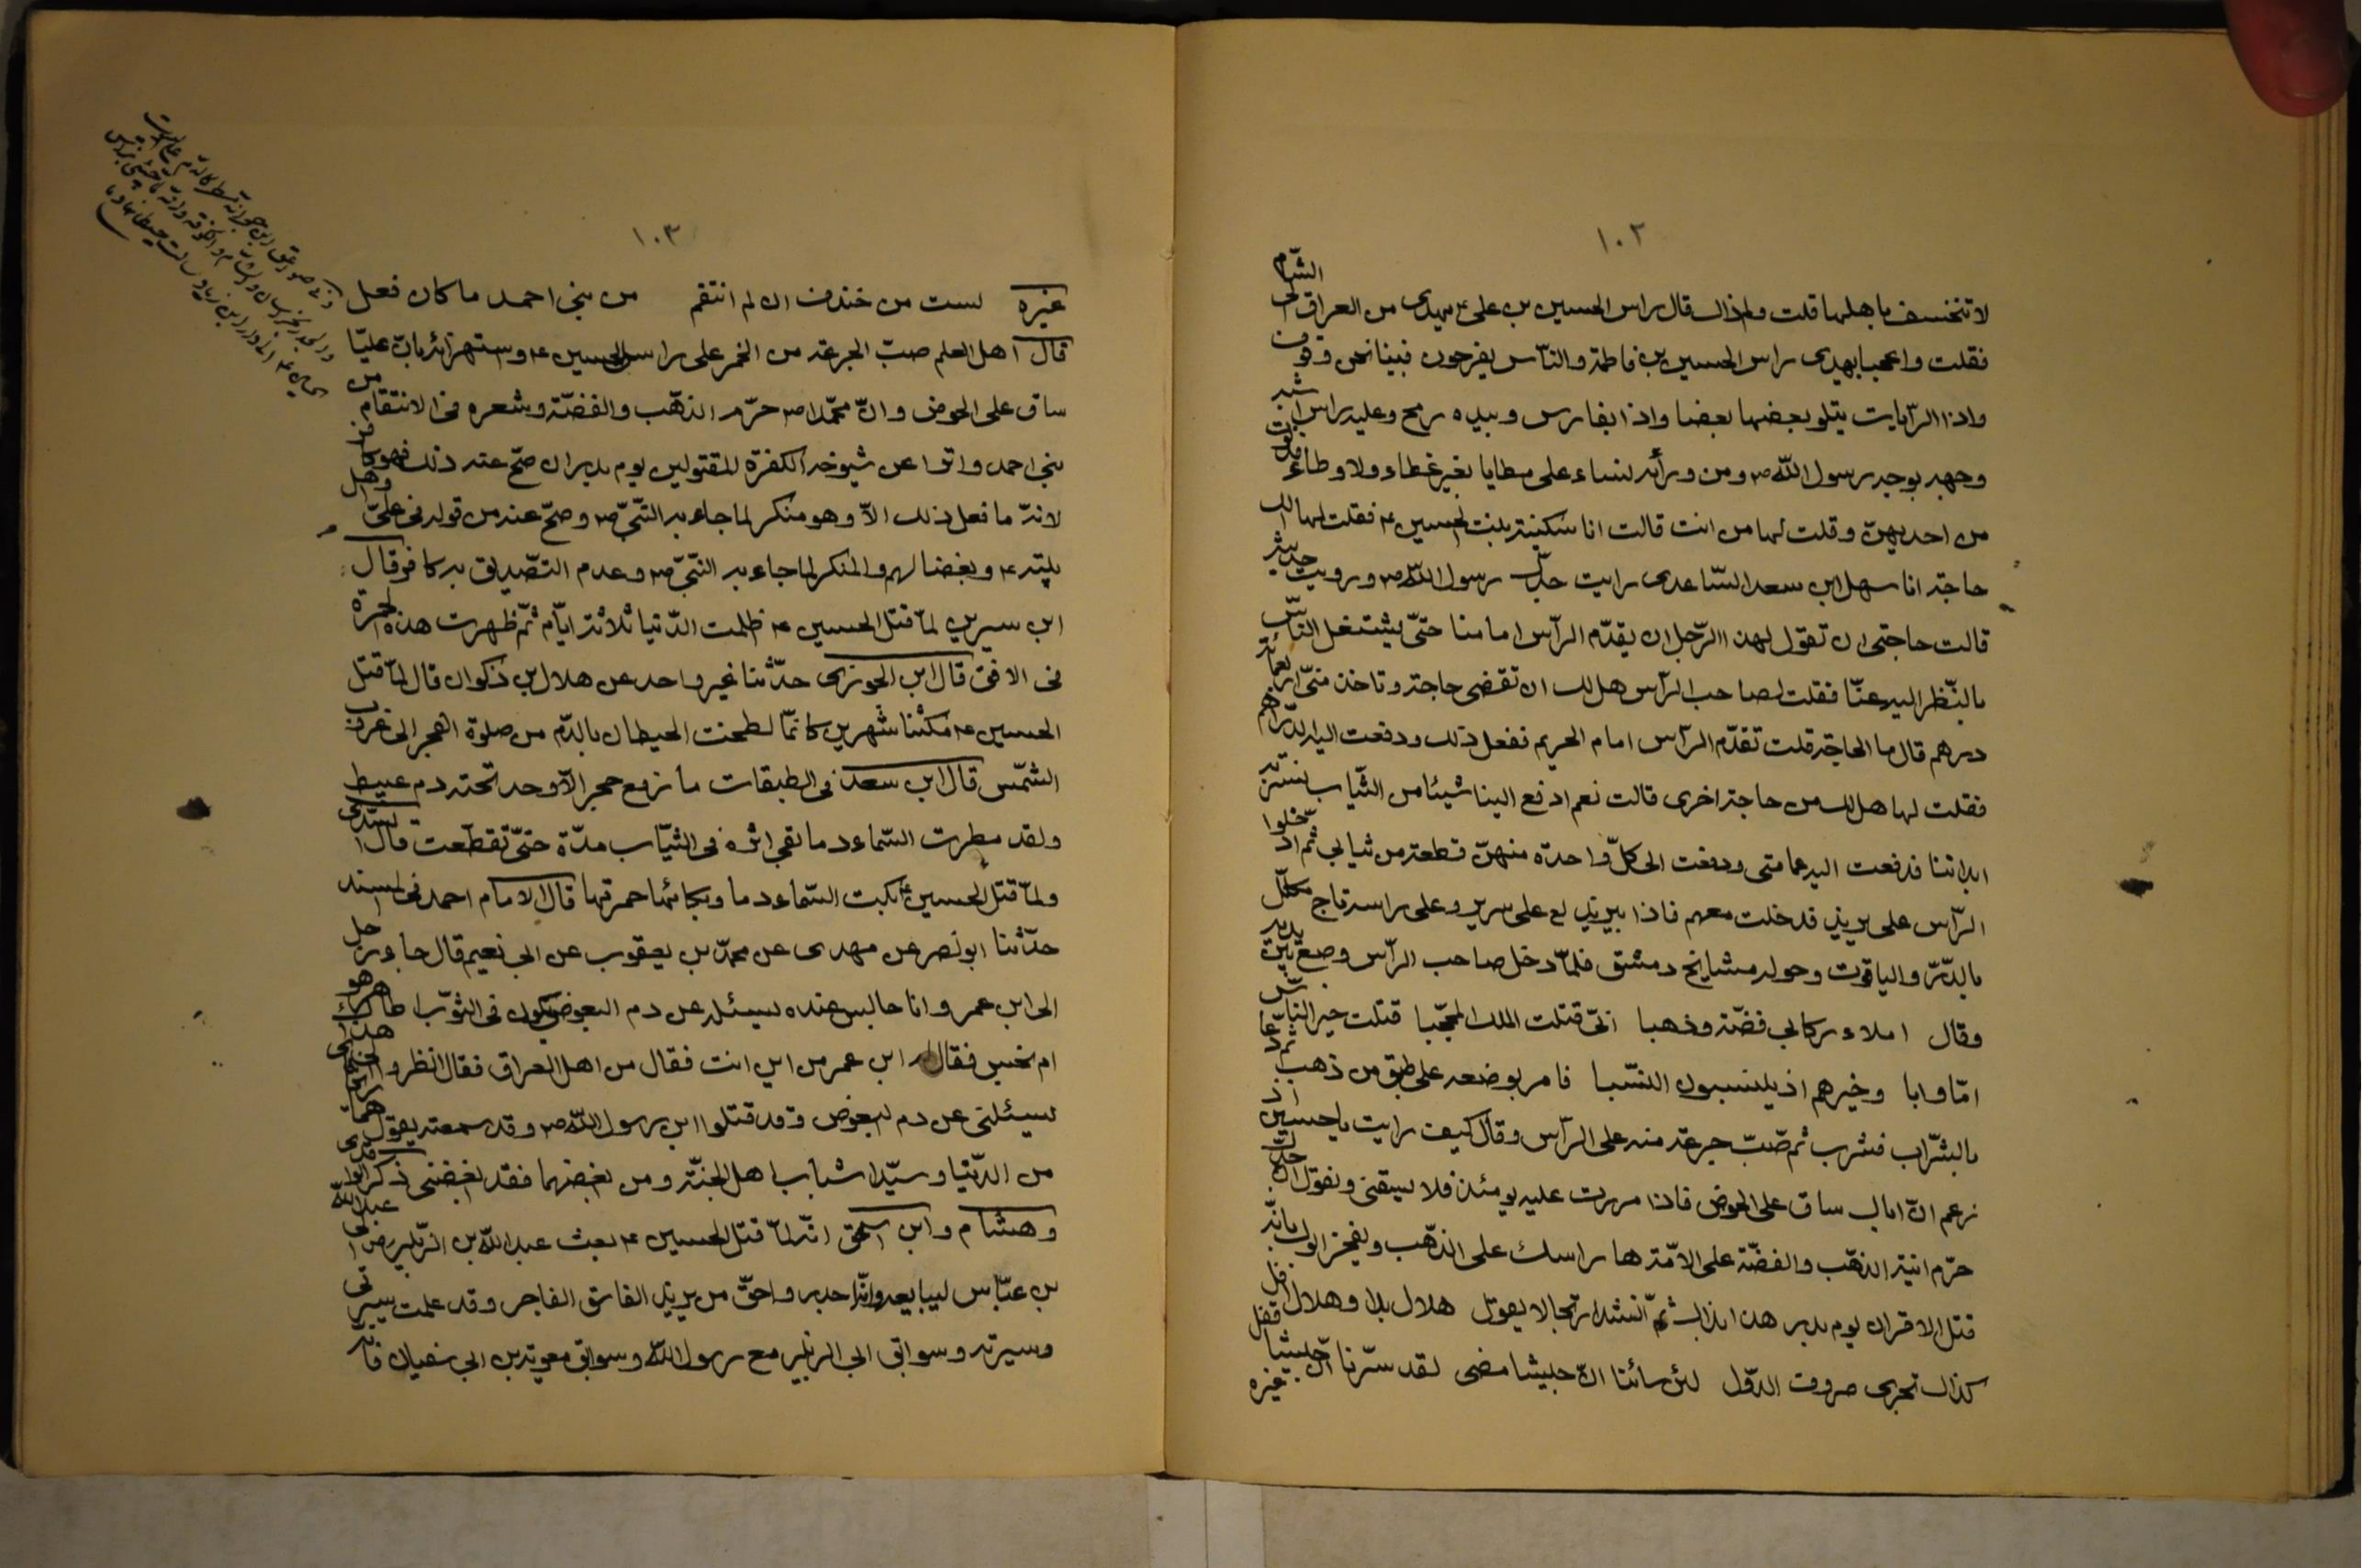 ١٠٢
لا تنخسف باهلها قلت ولم ذاك قال راس الحسين بن على ع يهدى من العراق الى الشّام
فقلت واعجبا يهدى راس الحسين بن فاطمة والنّاس يفرحون فبينا نحن وقوف
واذا الرّايات يتلو بعضها بعضا واذا بفارس وبيده رمح وعليه راس اشبه
وجهه بوجه رسول اللّه ص ومن ورأئه نساء على مطايا بغير غطاء ولا وطاء فدنوت
من احديهنّ وقلت لها من انت قالت انا سكينة بنت الحسين ع فقلت لها الك
حاجة انا سهل ابن سعد السّاعدى رايت جدّك رسول اللّه ص ورويت حديثه
قالت حاجتى ان تقول لهذا الرّجل ان يقدّم الرّأس امامنا حتّى يشتغل النّاس
بالنّظر اليه عنّا فقلت لصاحب الرّأس هل لك ان تقضى حاجة وتاخذ منّى اربعمائة
درهم قال ما الحاجة قلت تقدّم الرّأس امام الحريم ففعل ذلك ودفعت اليه الدّراهم
فقلت لها هل لك من حاجة اخرى قالت نعم ادفع الينا شيئا من الثّياب نستتر به
ابداننا فدفعت اليه عمامتى ودفعت الى كلّ واحدة منهنّ قطعة من ثيابى ثم ادخلوا
الرّأس على يزيد فدخلت معهم فاذا بيزيد لع على سرير وعلى راسه تاج مكلّل
بالدّرّ والياقوت وحوله مشايخ دمشق فلمّا دخل صاحب الرّأس وضع بين يديه
وقال املاء ركابى فضّة وذهبا انّى قتلت الملك المحجّبا قتلت خير النّاس
امّا وابا وخيرهم اذ ينسبون النسّبا فامر بوضعه على طبق من ذهب ثم دعا
بالشّراب فشرب ثم صبّ جرعة منه على الرّأس وقال كيف رايت يا حسين اذ
زعم انّ اباك ساق على الحوض فاذا مررت عليه يومئذ فلا يسقنى وتقول انّ جدّك
حرّم انية الذهّب والفضّة على الامّة ها راسك على الذهّب ويفخر ابوك بانّه
قتل الاقران يوم بدر هذا بذاك ثمّ انشد ارتجالا يقول هلال بدا وهلال افل
كذاك تجرى صروف الدّول لئن سائنا انّ جيشا مضى لقد سرّنا انّ جيشا قفل
غيره
١٠٣
غيره لست من خندف ان لم انتقم من بنى احمد ما كان فعل
قال اهل العلم صبّ الجرعة من الخمر على راس الحسين ع وستهزائه بانّ عليّا
ساق على الحوض وانّ محمّدا ص حرّم الذهّب والفضّة وشعره فى الانتقام من
بنى احمد واتوا عن شيوخه الكفرة المقتولين يوم بدر ان صحّ عنه ذلك فهو كافر
لانّه ما فعل ذلك الاّ وهو منكر لما جاء به النّبىّ ص وصحّ عنه من قوله فى علىّ واهل
بيته ع وبغضا لهم والمنكر لما جاء به النّبىّ ص وعدم التّصديق به كافر وقال
ابن سيرين لمّا قتل الحسين ع ظلمت الدّنيا ثلاثة ايّام ثمّ ظهرت هذه الحمرة
فى الافق قال ابن الجوزى حدّثنا غير واحد عن هلال بن ذكوان قال لمّا قتل
الحسين ع مكثنا شهرين كانّما لطخت الحيطان بالدّم من صلوة الفجر الى غروب
الشّمس قال ابن سعد فى الطبقات ما رفع حجر الاّ وجد تحته دم عبيط
ولقد مطرت السّماء دما بقى اثره فى الثيّاب مدّة حتّى تقطّعت قال السّدى
ولمّا قتل الحسين ع بكت السّماء دما وبكائها حمرتها قال الامام احمد فى المسند
حدّثنا ابو نصر عن مهدى عن محمّد بن يعقوب عن ابى نعيم قال جاء رجل
الى ابن عمر وانا جالس عنده يسئله عن دم البعوض يكون فى الثوّب اطاهر هو
ام نجس فقال له ابن عمر من اين انت فقال من اهل العراق فقال انظروا الى هذا
يسئلنى عن دم البعوض وقد قتلوا ابن رسول اللّه ص وقد سمعته يقول هما
من الدّنيا وسيّدا شباب اهل الجنّة ومن ابغضهما فقد ابغضنى ذكر الواقدى
وهشام وابن اسحق انّه لمّا قتل الحسين ع بعث عبد اللّه بن الزّبير الى عبد اللّه
بن عبّاس ليبايعه وانّا جدير واحقّ من يزيد الفاسق الفاجر وقد علمت سيرتى
وسيرته وسوابق ابى الزبير مع رسول اللّه وسوابق معوية بن ابى سفيان فانّه